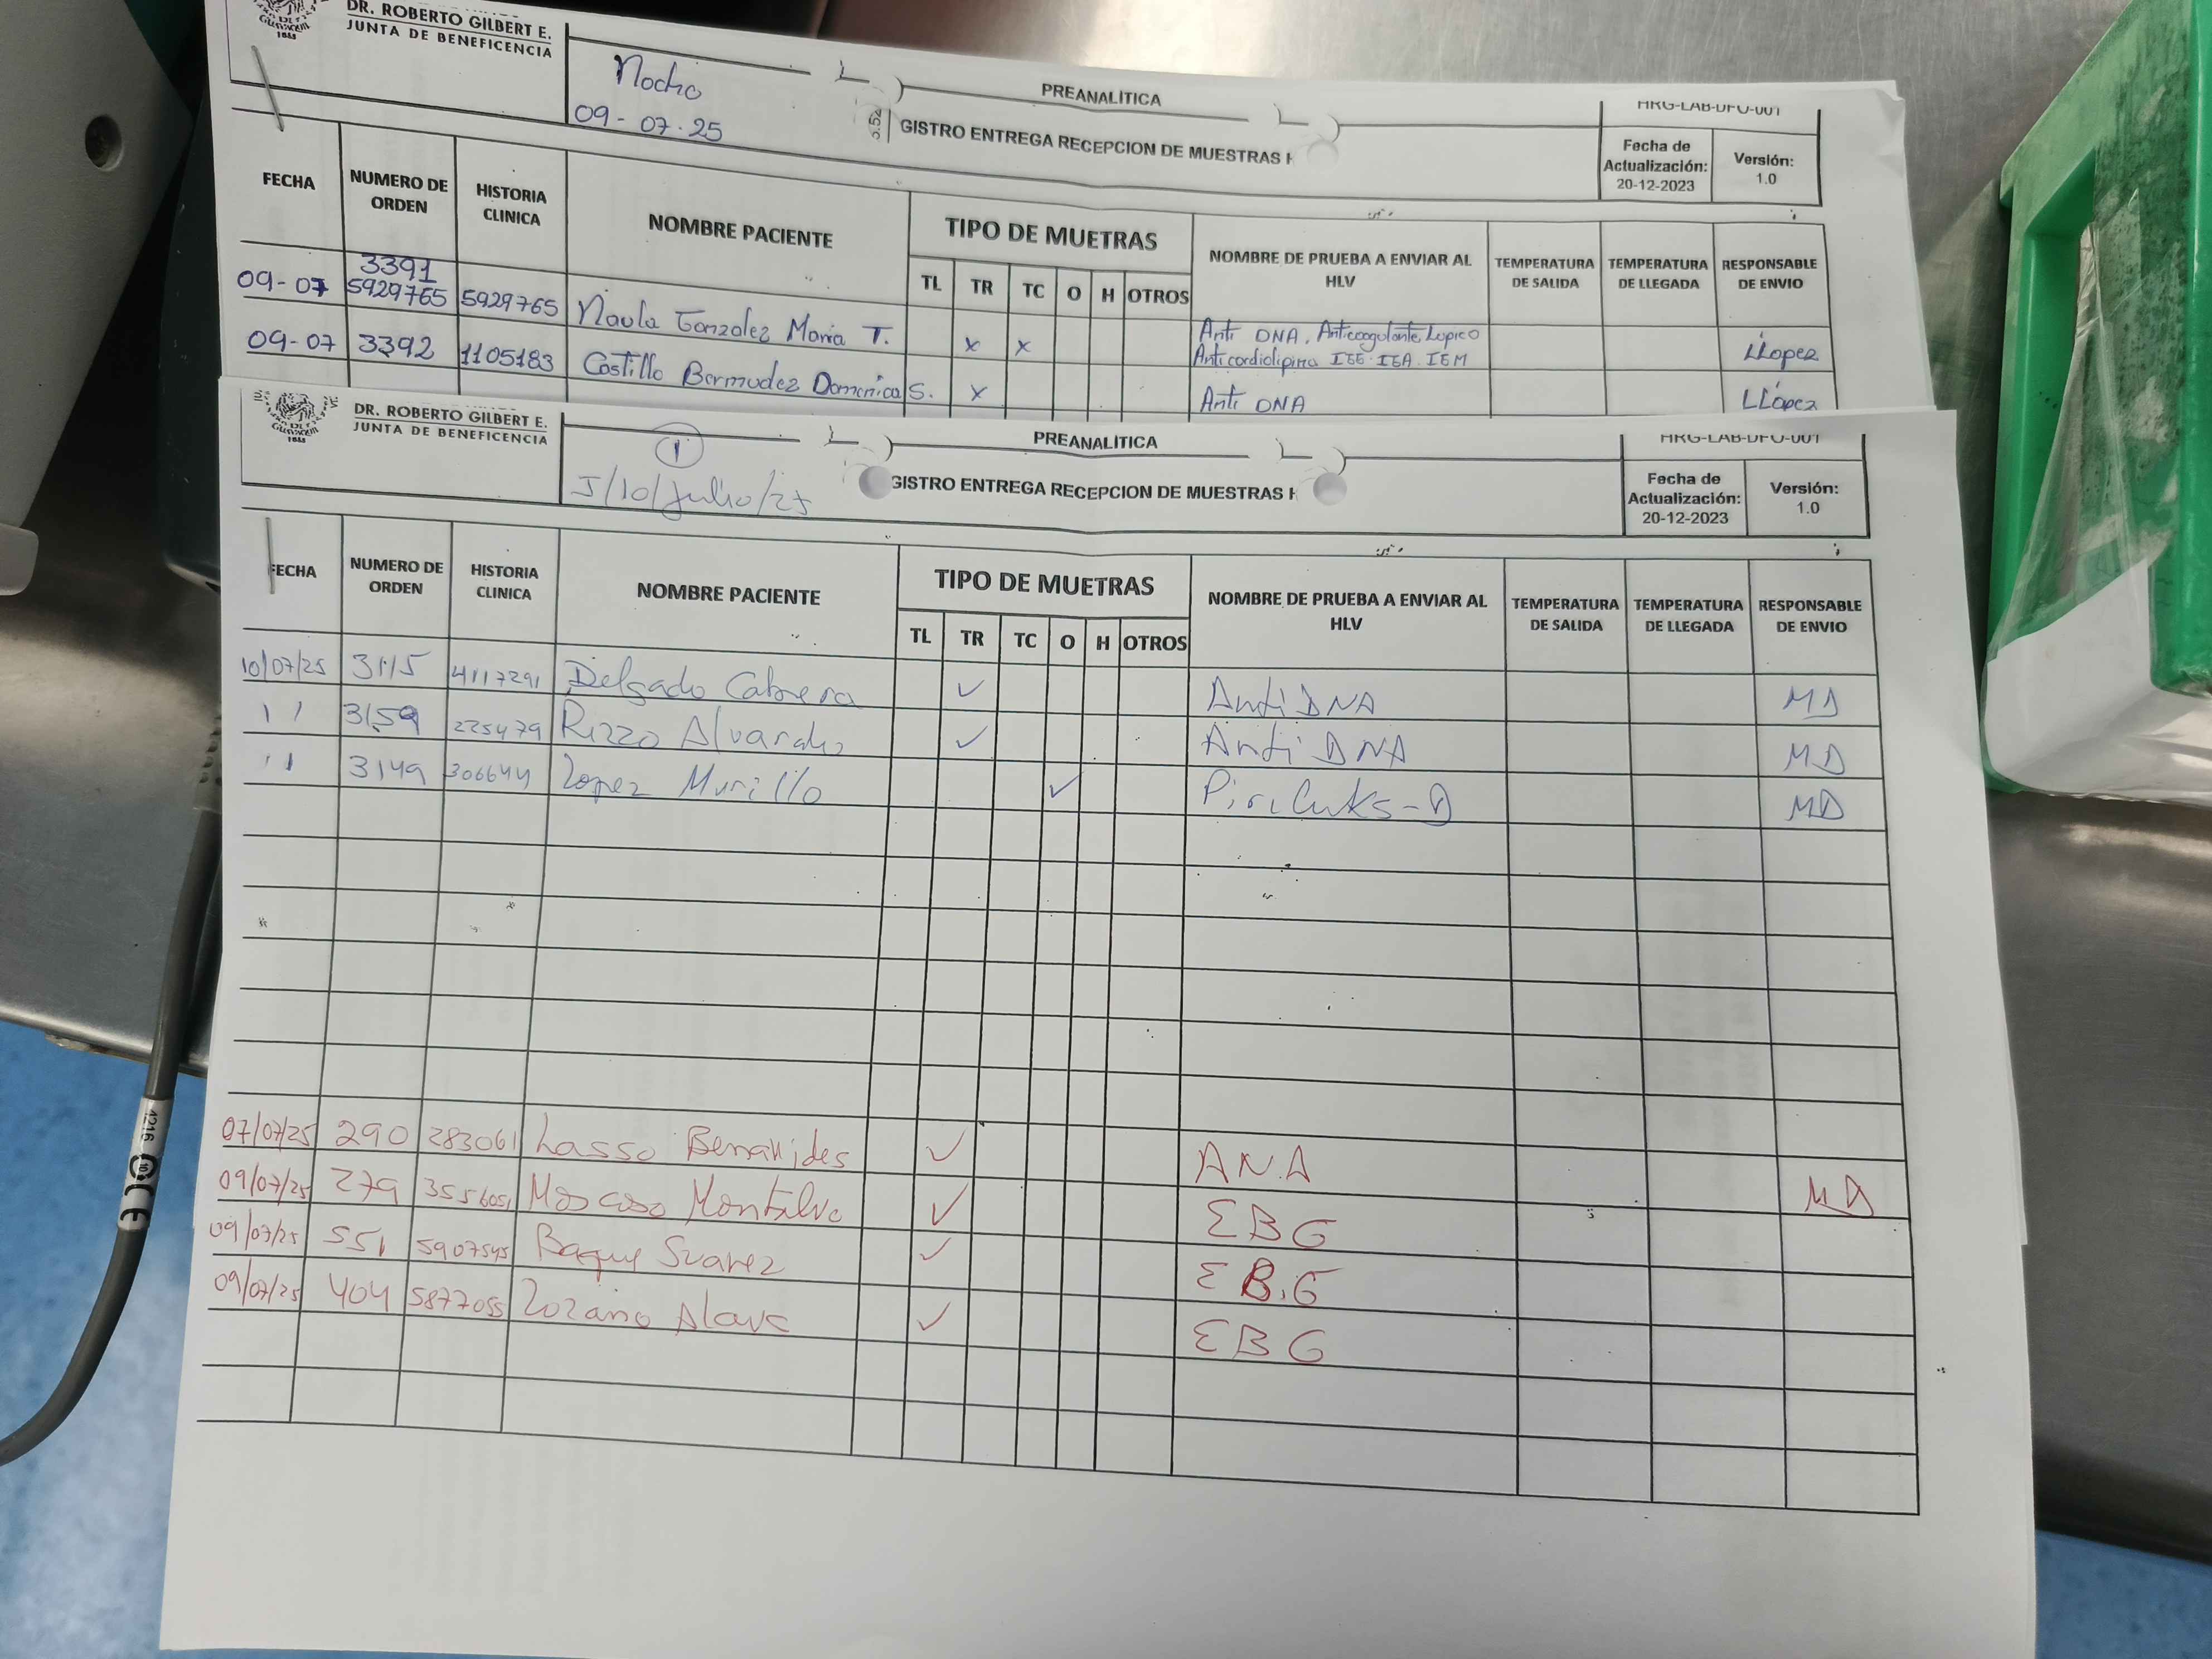 DR. ROBERTO GILBERT E.
JUNTA DE BENEFICENCIA
Noche
09-07-25
PREANALÍTICA
GISTRO ENTREGA RECEPCION DE MUESTRAS H
HRG-LAB-DFO-001
Fecha de Actualización: 20-12-2023
Versión: 1.0
FECHA NUMERO DE ORDEN HISTORIA CLINICA NOMBRE PACIENTE TIPO DE MUETRAS NOMBRE DE PRUEBA A ENVIAR AL HLV TEMPERATURA DE SALIDA TEMPERATURA DE LLEGADA RESPONSABLE DE ENVIO
TL TR TC O H OTROS
09-07 3391 5929765 5929765 Naula Gonzalez Maria T. x x Anti DNA, Anticoagulante Lupico Anticardiolipina IGG-IGA.IGM LLopez
09-07 3392 1105183 Castillo Bermudez Domenica S. x Anti DNA LLópez
DR. ROBERTO GILBERT E.
JUNTA DE BENEFICENCIA
1
J/10/Julio/25
PREANALÍTICA
GISTRO ENTREGA RECEPCION DE MUESTRAS H
HRG-LAB-DFO-001
Fecha de Actualización: 20-12-2023
Versión: 1.0
FECHA NUMERO DE ORDEN HISTORIA CLINICA NOMBRE PACIENTE TIPO DE MUETRAS NOMBRE DE PRUEBA A ENVIAR AL HLV TEMPERATURA DE SALIDA TEMPERATURA DE LLEGADA RESPONSABLE DE ENVIO
TL TR TC O H OTROS
10/07/25 3115 4117291 Delgado Cabrera ✓ Anti DNA MD
11 3159 225479 Rizzo Alvarado ✓ Anti DNA MD
11 3149 306644 Lopez Murillo ✓ MD
07/07/25 290 283061 Lasso Benavides ✓ AN.A MD
09/07/25 279 Moscoso Montalvo ✓ EBG
09/07/25 551 5907545 Baque Suarez ✓ EB.G
09/07/25 404 5877055 Lozano Alava ✓ EBG
4216
CE